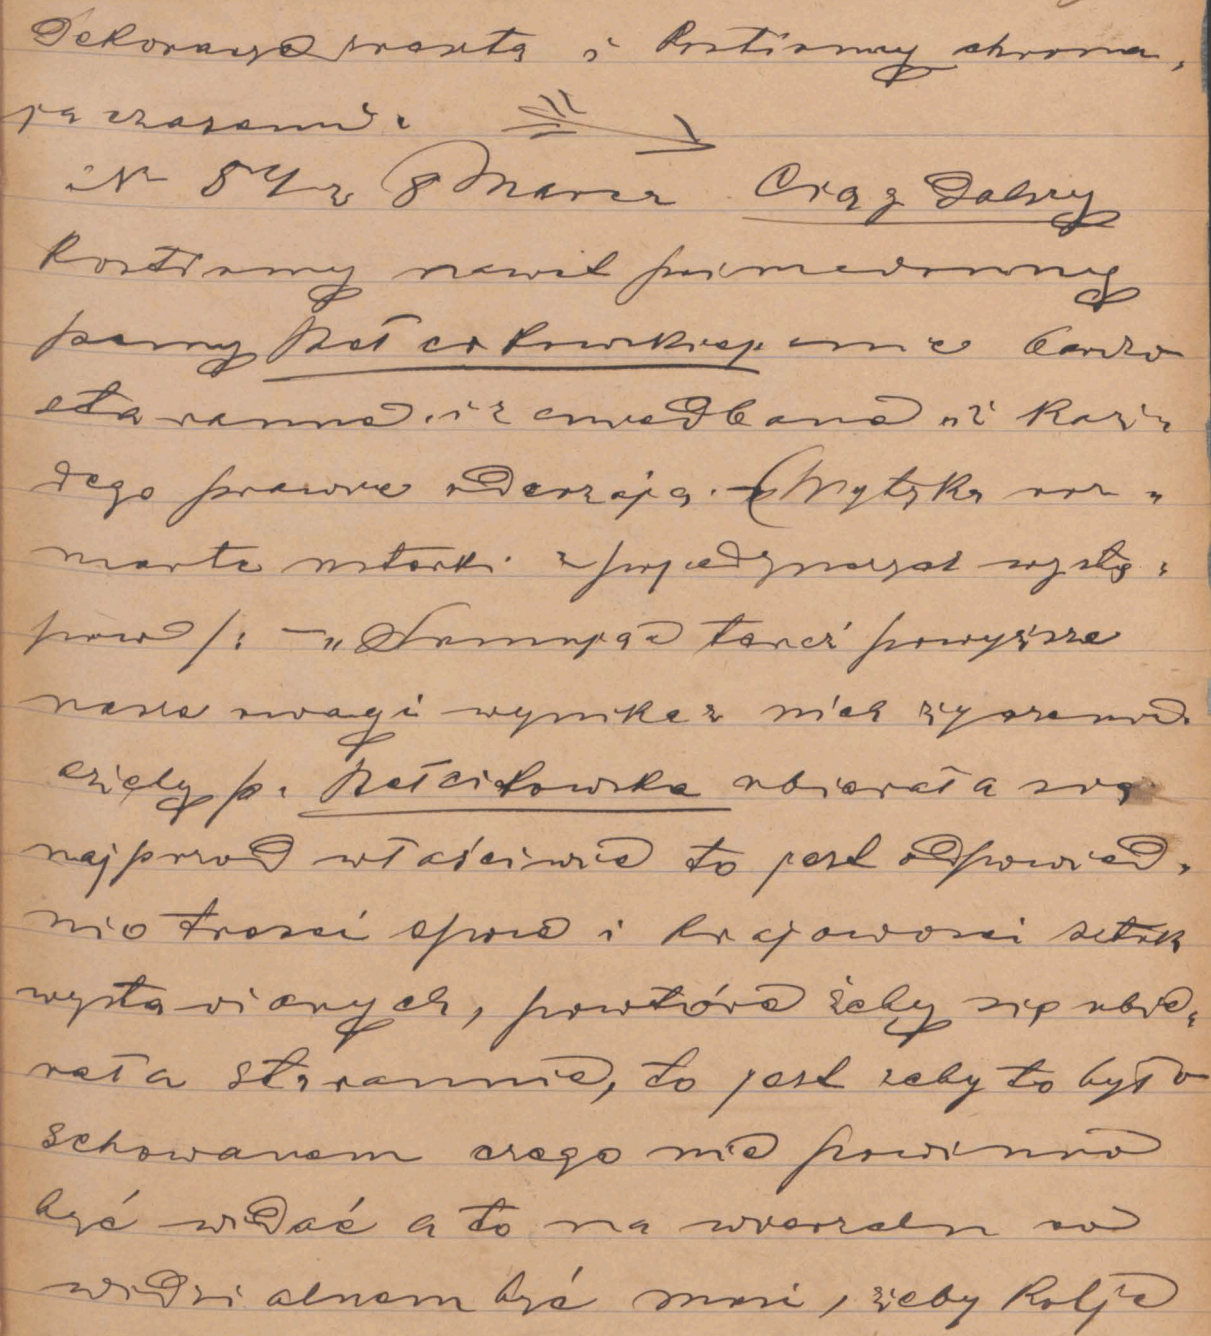 Dekoracye resztą i Kostiumy chroma,
ją czasami.
N 54 z 8 Marca Ciąg Dalszy
Kostiumy nawet primadonny
panny Kościółkowskiej nie bardzo
staranne i zaniedbane i każ,
dego prawie uderzają. — (Wytyka
usterki z pojedynczych wystę,
pów /: — „ Sumując tanci powyższe
nasze uwagi wynika z nich życzenie
ażeby p. ubierała się
najprzód właściwie to jest odpowied,
nio treści epoce i krajowości sztuk
wystawionych, powtóre żeby się ubie,
rała starannie, to jest żeby to było
schowanem czego nie powinno
być widać a to na wierzchu co
widzialnem być musi, żeby